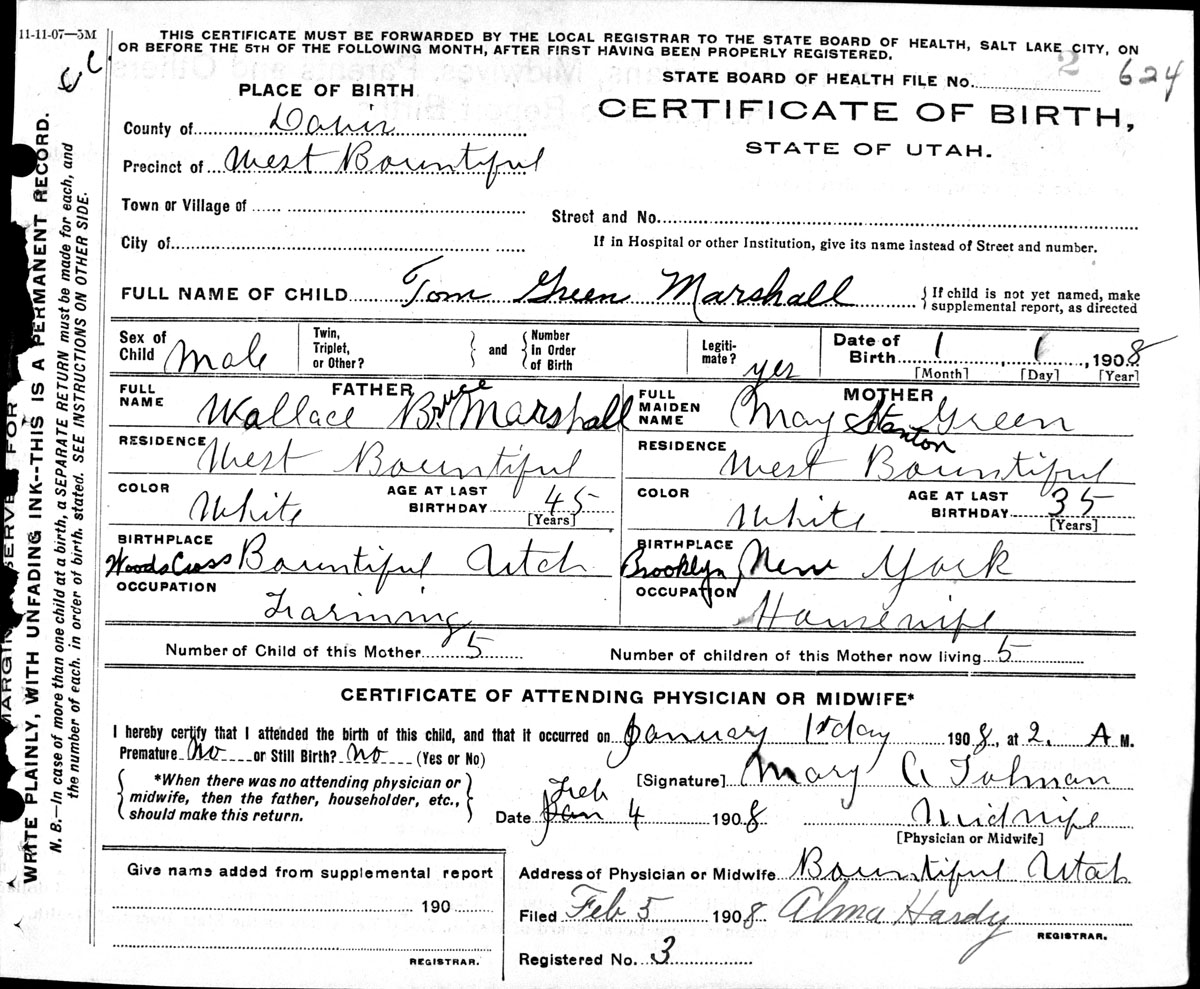 11-11-07—5M
THIS CERTIFICATE MUST BE FORWARDED BY THE LOCAL REGISTRAR TO THE STATE BOARD OF HEALTH, SALT LAKE CITY, ON
OR BEFORE THE 5TH OF THE FOLLOWING MONTH, AFTER FIRST HAVING BEEN PROPERLY REGISTERED.
2
STATE BOARD OF HEALTH FILE No. 624
PLACE OF BIRTH
CERTIFICATE OF BIRTH,
STATE OF UTAH.
County of Davis
Precinct of West Bountiful
Town or Village of
Street and No.
City of
If in Hospital or other Institution, give its name instead of Street and number.
FULL NAME OF CHILD Tom Green Marshall { If child is not yet named, make
supplemental report, as directed
Sex of Child Male Twin, Triplet, or Other? } and { Number In Order of Birth Legiti-mate? yes Date of Birth 1 1, 1908
[Month] [Day] [Year]
FATHER
FULL NAME Wallace Bruce Marshall
MOTHER
FULL MAIDEN NAME May Stanton Green
RESIDENCE West Bountiful
RESIDENCE West Bountiful
COLOR White AGE AT LAST BIRTHDAY 45 [Years]
COLOR White AGE AT LAST BIRTHDAY 35 [Years]
BIRTHPLACE Woods Cross Bountiful Utah
BIRTHPLACE Brooklyn, New York
OCCUPATION Farming
OCCUPATION Housewife
Number of Child of this Mother 5 Number of children of this Mother now living 5
CERTIFICATE OF ATTENDING PHYSICIAN OR MIDWIFE*
I hereby certify that I attended the birth of this child, and that it occurred on January 1st day 1908, at 2. A M.
Premature No or Still Birth? No (Yes or No)
{ *When there was no attending physician or
midwife, then the father, householder, etc.,
should make this return. }
[Signature] Mary A Tolman
Date Jan Feb 4 1908 Midwife
[Physician or Midwife]
Give name added from supplemental report
190
REGISTRAR.
Address of Physician or Midwife Bountiful Utah
Filed Feb 5 1908 Alma Hardy
REGISTRAR.
Registered No. 3
WRITE PLAINLY, WITH UNFADING INK--THIS IS A PERMANENT RECORD.
N. B.—In case of more than one child at a birth, a SEPARATE RETURN must be made for each, and
the number of each, in order of birth, stated. SEE INSTRUCTIONS ON OTHER SIDE.